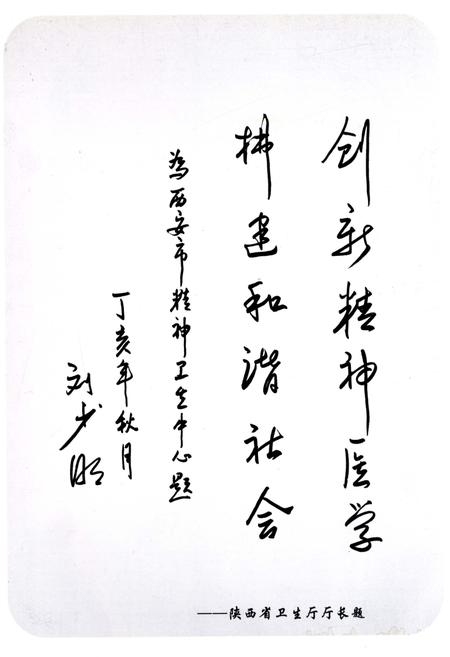 创新精神医学
构建和谐社会
為西安市精神卫生中心题
丁亥年秋月
刘少明
——陕西省卫生厅厅长题